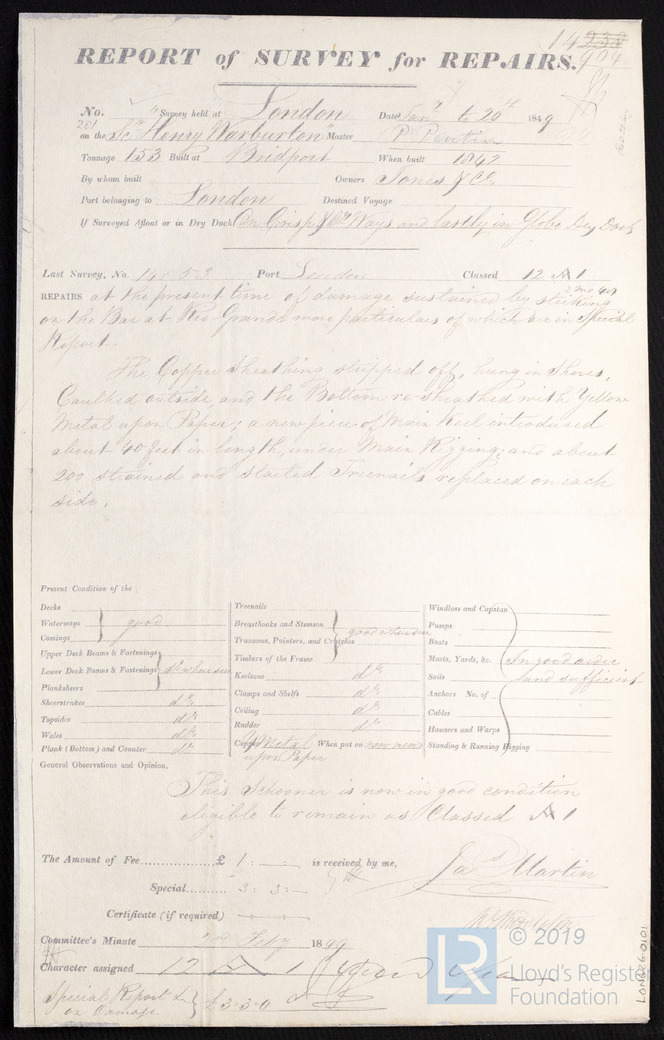 14238
904
REPORT of SURVEY for REPAIRS.
No. 281 Survey held at London Date Jany 7 to 20th 1849
on the Sr Henry Warburton Master P. Pentin
Tonnage 153 Built at Bridport When built 1842
By whom built Owners Jones & Co
Port belonging to London Destined Voyage
If Surveyed Afloat or in Dry Dock On Crisp & Co Ways and lastly in Globe Dry Dock
Last Survey, No. 14153 Port London Classed 12 A 1
REPAIRS at the present time of damage sustained by striking
on the Bar at Rio Grande more particulars of which are in Special
Report.
The Copper Sheathing stripped off, hung in Shores,
Caulked outside and the Bottom re-sheathed with Yellow
Metal upon Paper; a new piece of Main Keel introduced
about 40 feet in length, under Main Rigging; and about
200 strained and started Treenails replaced on each
side.
Present Condition of the
Decks
Waterways good
Comings
Upper Deck Beams & Fastenings
Lower Deck Beams & Fastenings
Planksheers
Sheerstrakes do
Topsides do
Wales do
Plank (Bottom) and Counter do
Treenails
Breasthooks and Stemson
Transoms, Pointers, and Crutches good where seen
Timbers of the Frame
Keelsons do
Clamps and Shelfs do
Ceiling do
Rudder do
Copper Y Metal When put on now new
upon Paper
Windlass and Capstan
Pumps
Boats
Masts, Yards, &c. In good order
Sails and sufficient
Anchors No. of
Cables
Hawsers and Warps
Standing & Running Rigging
General Observations and Opinion,
This Schooner is now in good condition
eligible to remain as Classed A 1
The Amount of Fee £ 1 : – : – is received by me,
Special 3 : 3 : – Jas Martin
Certificate (if required)
Committee's Minute 2nd Feby 1849
Character assigned 12 A 1
Special Report
on Damage } £3-3-0
LR
© 2019
Lloyd's Register
Foundation
LON026-0101